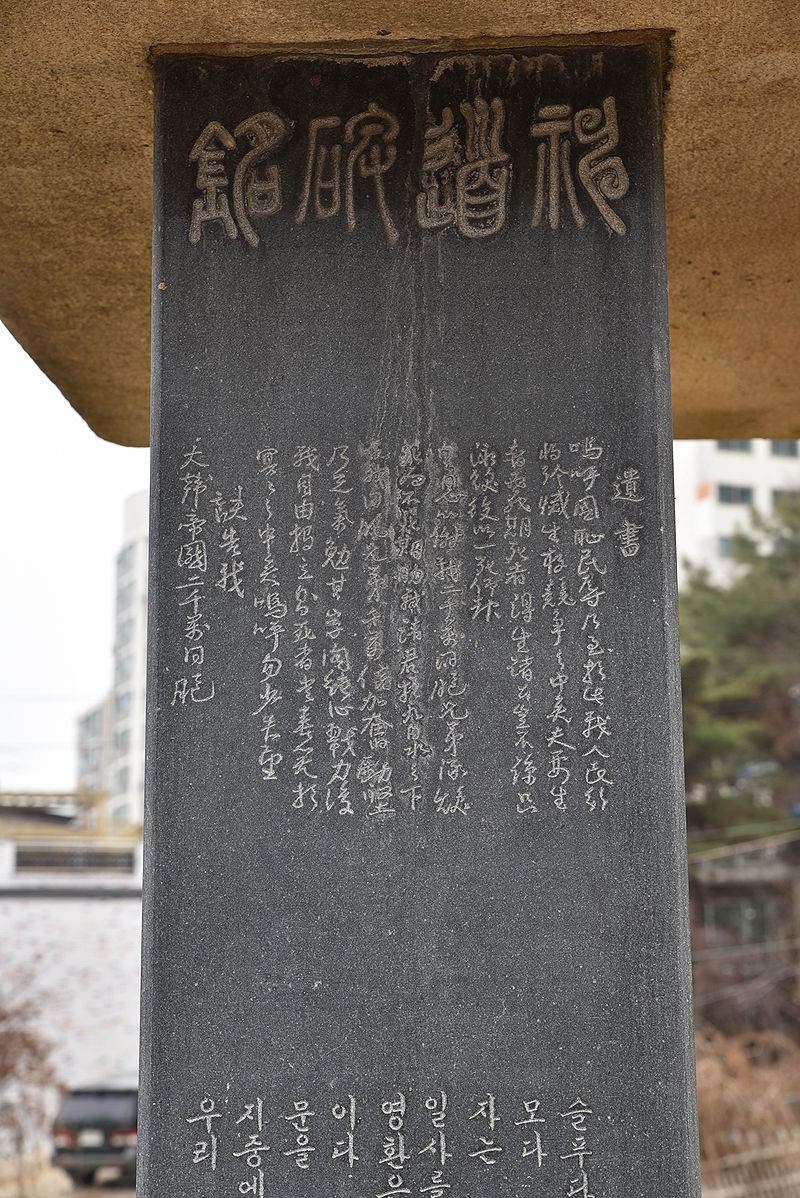 神道碑銘
遺書
嗚呼國恥民辱乃至於此我人民行
將殄滅生存競爭之中矣夫要生
者必死期死者得生諸公豈不諒只
泳煥徒以一死仰報
皇恩以謝我二千萬同胞兄弟泳煥
死而不死期助諸君於九泉之下
幸我同胞兄弟千萬倍加奮勵堅
乃志氣勉其學問結心戮力復
我自由獨立則死者當喜笑於
冥冥之中矣嗚呼勿少失望
訣告我
大韓帝國二千萬同胞
슬푸다
모다
자는
일사를
영환은
이다
문을
지중에
우리